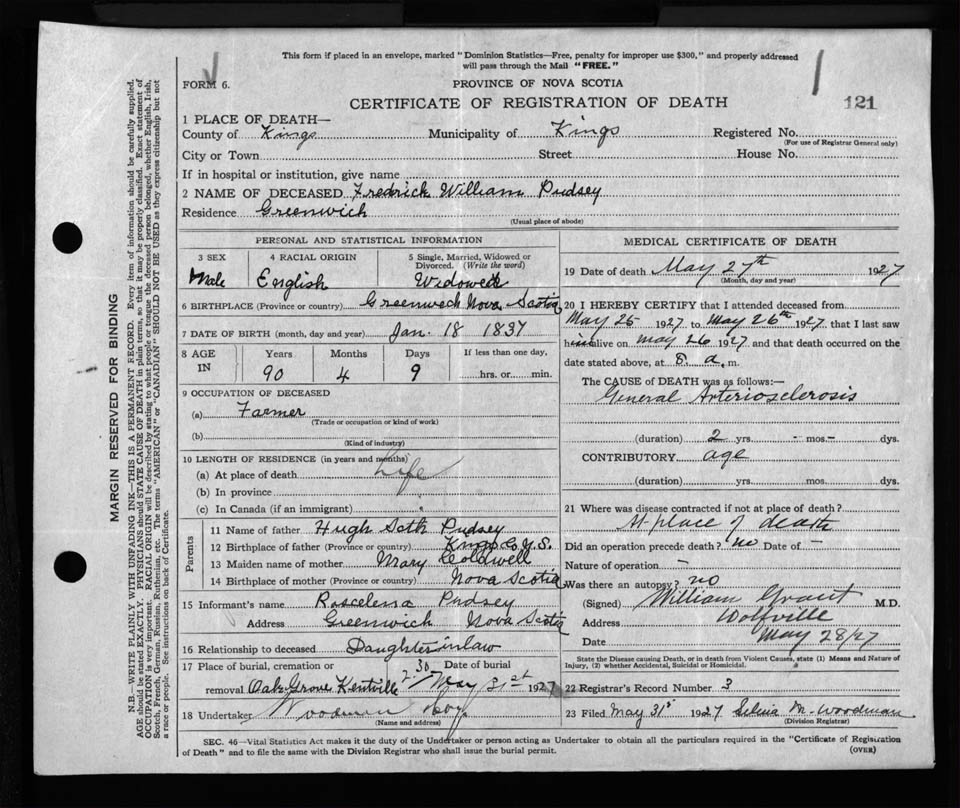 This form if placed in an envelope, marked "Dominion Statistics—Free, penalty for improper use $300," and properly addressed
will pass through the Mail "FREE."
FORM 6.
PROVINCE OF NOVA SCOTIA
CERTIFICATE OF REGISTRATION OF DEATH
121
1 PLACE OF DEATH—
County of Kings Municipality of Kings Registered No.
(For use of Registrar General only)
City or Town Street House No.
If in hospital or institution, give name
2 NAME OF DECEASED Fredrick William Pudsey
Residence Greenwich
(Usual place of abode)
PERSONAL AND STATISTICAL INFORMATION
3 SEX 4 RACIAL ORIGIN 5 Single, Married, Widowed or
Divorced. (Write the word)
Male English Widowed
6 BIRTHPLACE (Province or country) Greenwich Nova Scotia
7 DATE OF BIRTH (month, day and year) Jan. 18 1837
8 AGE IN Years Months Days If less than one day,
90 4 9 hrs. or min.
9 OCCUPATION OF DECEASED
(a) Farmer
(Trade or occupation or kind of work)
(b)
(Kind of industry)
10 LENGTH OF RESIDENCE (in years and months)
(a) At place of death Life
(b) In province
(c) In Canada (if an immigrant)
Parents
11 Name of father Hugh Seth Pudsey
12 Birthplace of father (Province or country) Kings Co N.S.
13 Maiden name of mother Mary Coldwell
14 Birthplace of mother (Province or country) Nova Scotia
15 Informant's name Pudsey
Address Greenwich Nova Scotia
16 Relationship to deceased Daughter in law
17 Place of burial, cremation or Date of burial
removal Oak Grove Kentville 2.30 May 31st 1927
18 Undertaker Woodman
(Name and address)
MEDICAL CERTIFICATE OF DEATH
19 Date of death May 27th 1927
(Month, day and year)
20 I HEREBY CERTIFY that I attended deceased from
May 25 1927 to May 26th 1927, that I last saw
him alive on May 26 1927 and that death occurred on the
date stated above, at 8. a. m.
The CAUSE OF DEATH was as follows:—
General Arteriosclerosis
(duration) 2 yrs. - mos. - dys.
CONTRIBUTORY age
(duration) yrs. mos. dys.
21 Where was disease contracted if not at place of death?
At place of death
Did an operation precede death? no Date of -
Nature of operation -
Was there an autopsy? no
(Signed) William Grant M.D.
Address Wolfville
Date May 28/27
State the Disease causing Death, or in death from Violent Causes, state (1) Means and Nature of
Injury, (2) whether Accidental, Suicidal or Homicidal.
22 Registrar's Record Number 3
23 Filed May 31st 1927 M. Woodman
(Division Registrar)
SEC. 46—Vital Statistics Act makes it the duty of the Undertaker or person acting as Undertaker to obtain all the particulars required in the "Certificate of Registration
of Death" and to file the same with the Division Registrar who shall issue the burial permit.
(OVER)
MARGIN RESERVED FOR BINDING
N.B. WRITE PLAINLY WITH UNFADING INK—THIS IS A PERMANENT RECORD. Every item of information should be carefully supplied.
AGE should be stated EXACTLY. PHYSICIANS should STATE CAUSE OF DEATH in plain terms, so that it may be properly classified. Exact statement of
OCCUPATION is very important. RACIAL ORIGIN will be described by stating to what people or tongue the deceased person belonged, whether English, Irish,
Scotch, French, German, Russian, Ruthenian, etc. The terms "AMERICAN" or "CANADIAN" SHOULD NOT BE USED as they express citizenship but not
a race or people. See instructions on back of Certificate.